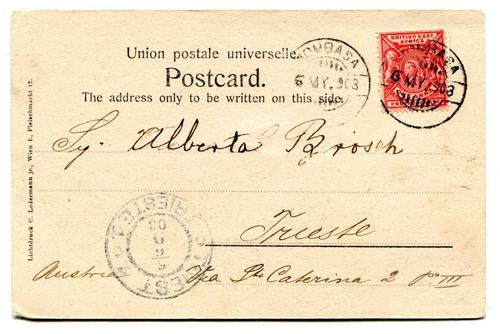 Union postale universelle.
Postcard.
The address only to be written on this side.
MOMBASA
6 MY. 903
BRITISH EAST
AFRICA
MOMBASA
6 MY. 903
Sy. Alberta Brosch
Trieste
Austria Via Sta Caterina 2 p. III
TRIEST
TRIESTE
Lichtdruck C. Ledermann jr., Wien I., Fleischmarkt 12.